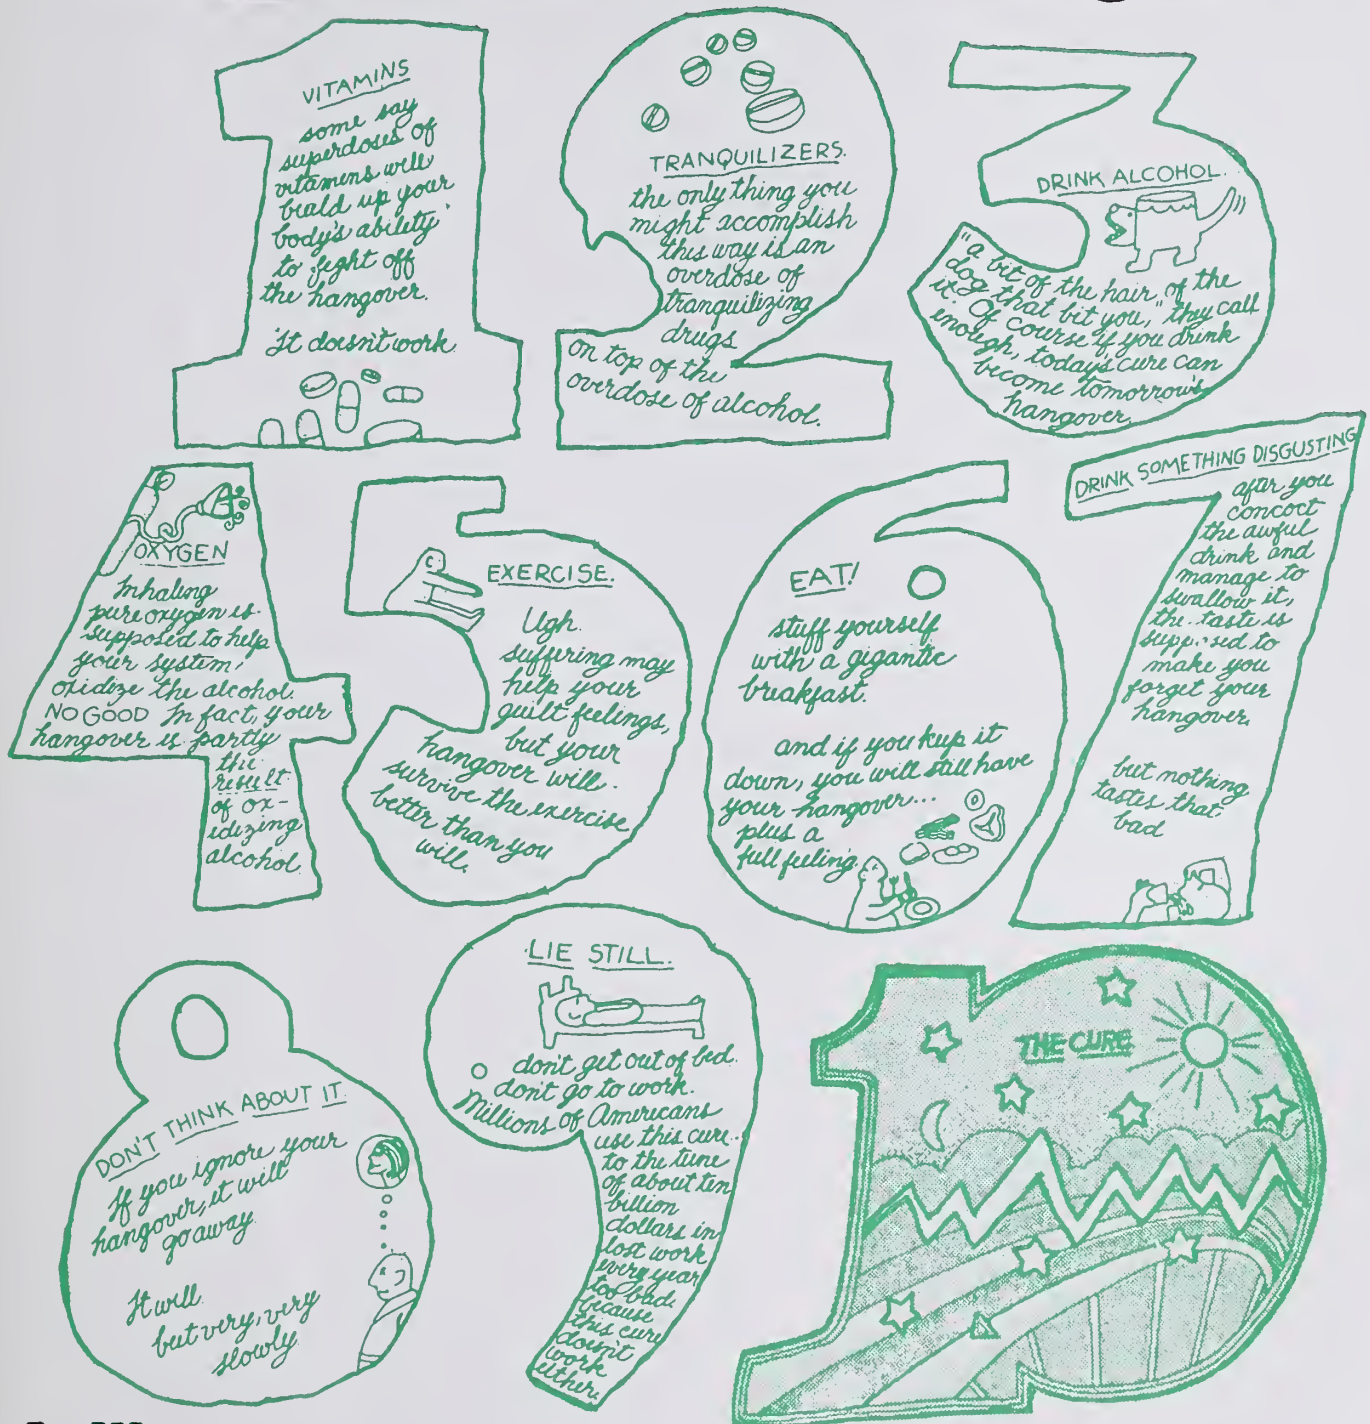 VITAMINS
some say
superdoses of
vitamins will
build up your
body's ability
to fight off
the hangover.
It doesn't work
TRANQUILIZERS.
the only thing you
might accomplish
this way is an
overdose of
tranquilizing
drugs
on top of the
overdose of alcohol.
DRINK ALCOHOL.
"a bit of the hair of the
dog that bit you," they call
it. Of course if you drink
enough, today's cure can
become tomorrow's
hangover.
OXYGEN
Inhaling
pure oxygen is
supposed to help
your system
oxidize the alcohol.
NO GOOD In fact, your
hangover is partly
the
result
of ox-
idizing
alcohol.
EXERCISE.
Ugh.
suffering may
help your
guilt feelings,
but your
hangover will
survive the exercise
better than you
will.
EAT!
stuff yourself
with a gigantic
breakfast.
and if you keep it
down, you will still have
your hangover...
plus a
full feeling.
DRINK SOMETHING DISGUSTING
after you
concoct
the awful
drink and
manage to
swallow it,
the taste is
supposed to
make you
forget your
hangover.
but nothing
tastes that
bad
DON'T THINK ABOUT IT.
If you ignore your
hangover, it will
go away.
It will.
but very, very
slowly.
LIE STILL.
don't get out of bed.
don't go to work.
Millions of Americans
use this cure
to the tune
of about ten
billion
dollars in
lost work
every year
too bad.
because
this cure
doesn't
work
either.
THE CURE